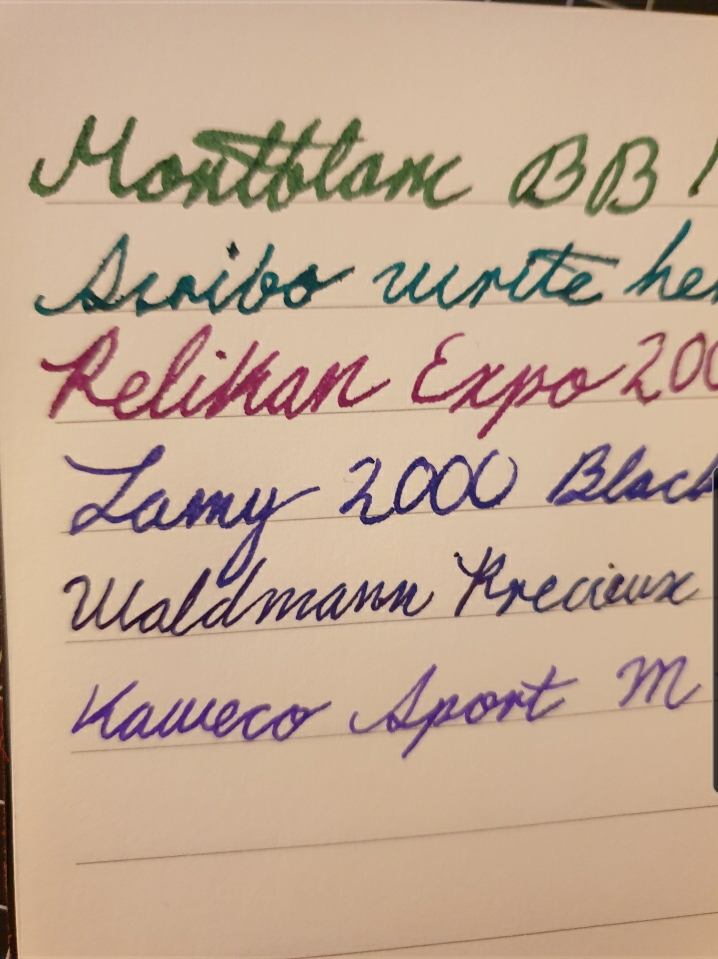 Montblanc BB
Scribo write
Pelikan Expo 200
Lamy 2000 Black
Waldmann Precieux
Kaweco Sport M